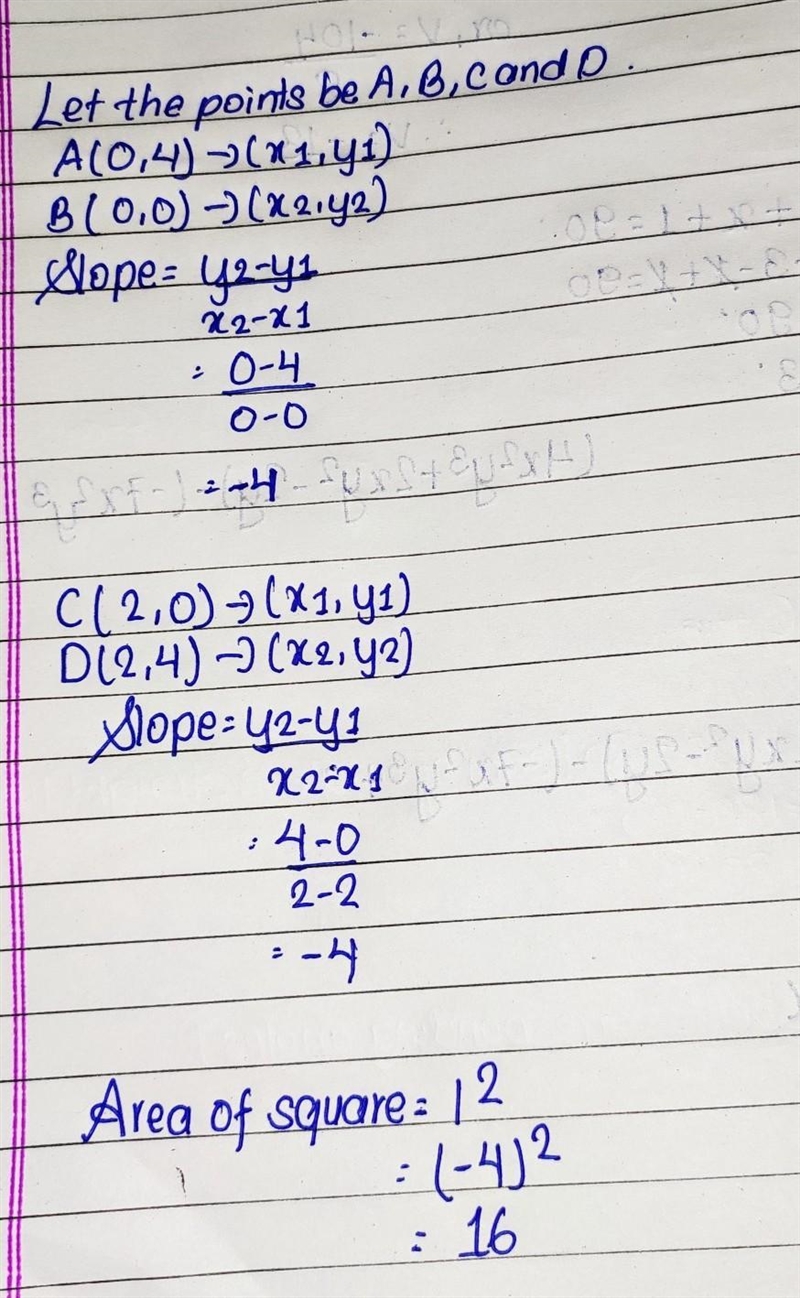 Let the points be A, B, C and D.
A(0,4) → (x1, y1)
B(0,0) → (x2, y2)
Slope = y2-y1
x2-x1
= 0-4
0-0
= -4
C(2,0) → (x1, y1)
D(2,4) → (x2, y2)
Slope = y2-y1
x2-x1
= 4-0
2-2
= -4
Area of square = l²
= (-4)²
= 16